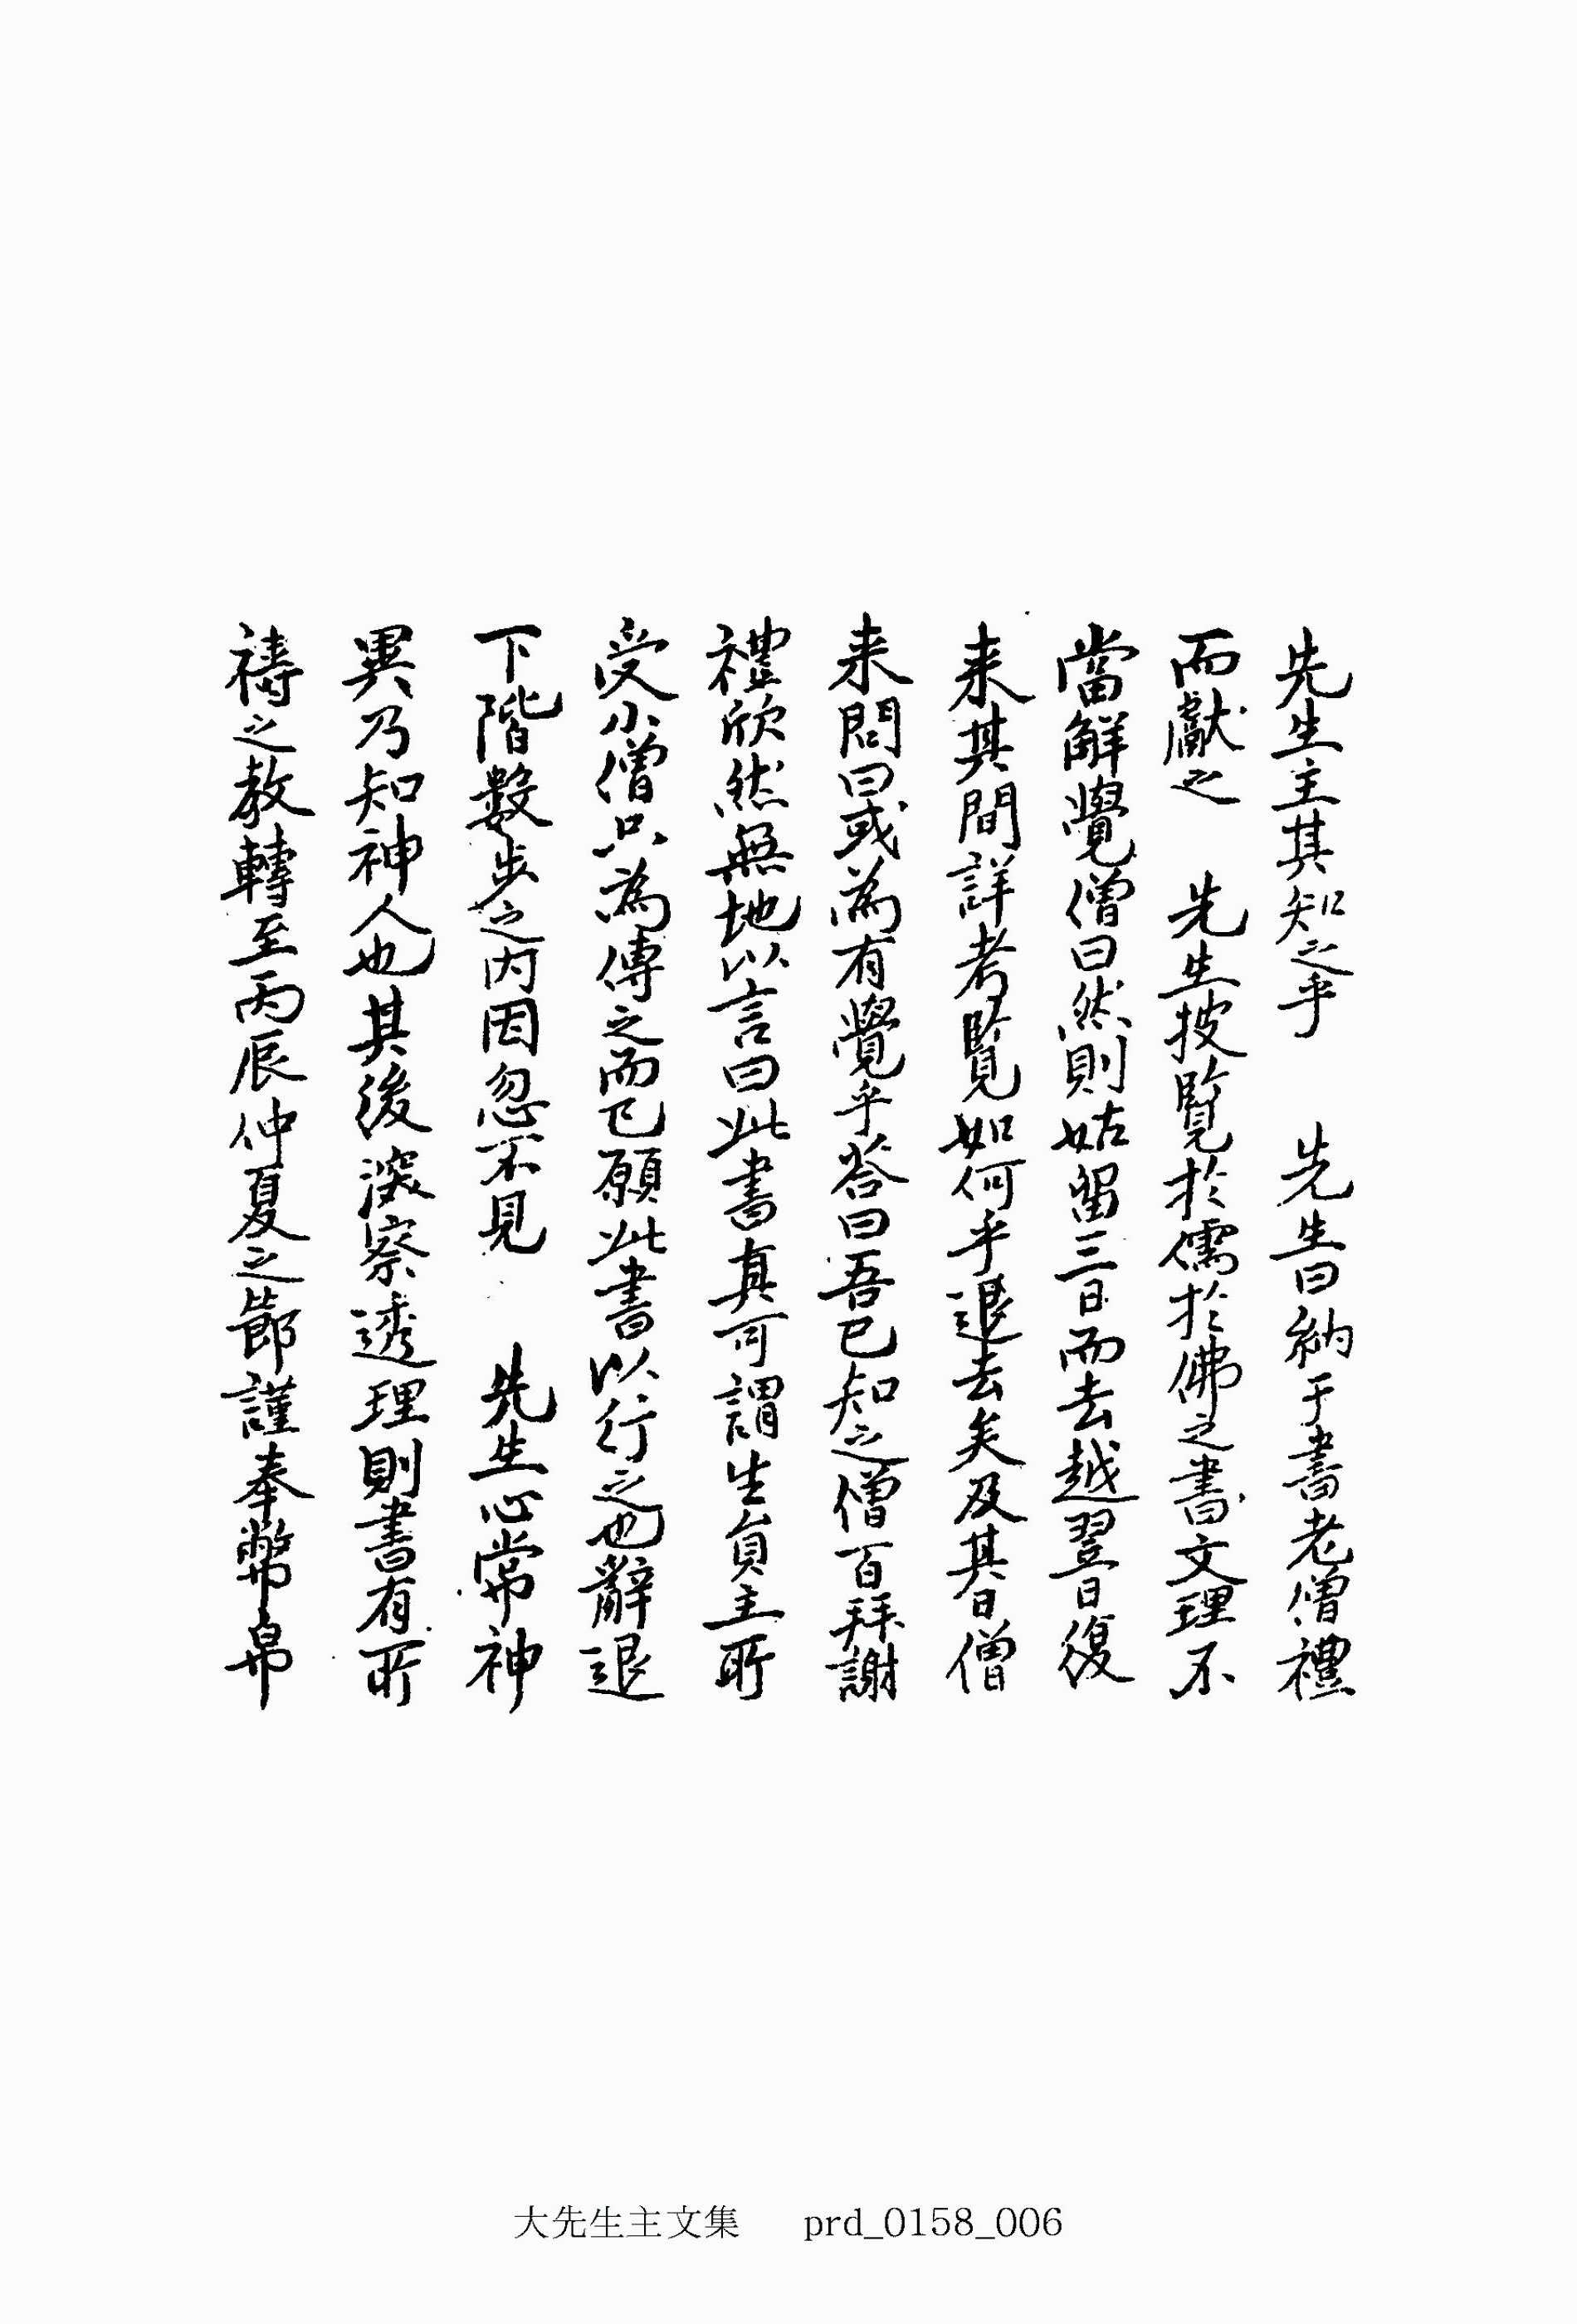 先生主其知之乎　先生曰納于書老僧禮
而獻之　先生披覽於儒於佛之書文理不
當觧覺僧曰然則姑留三日而去越翌日復
来其間詳考覧如何乎退去矣及其日僧
来問曰或為有覺乎答曰吾已知之僧百拜謝
禮欣然無地以言曰此書真可謂生員主所
受小僧只為傳之而已願此書以行之也辭退
下階數步之內因忽不見　先生心常神
異乃知神人也其後深察透理則書有所
禱之教轉至丙辰仲夏之節謹奉幣帛
大先生主文集 prd_0158_006